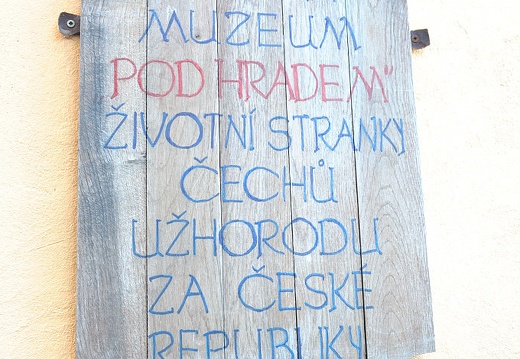 MUZEUM
POD HRADEM"
ŽIVOTNÍ STRANKY
ČECHŮ
UŽHORODU
ZA ČESKÉ
REPUBLIKY